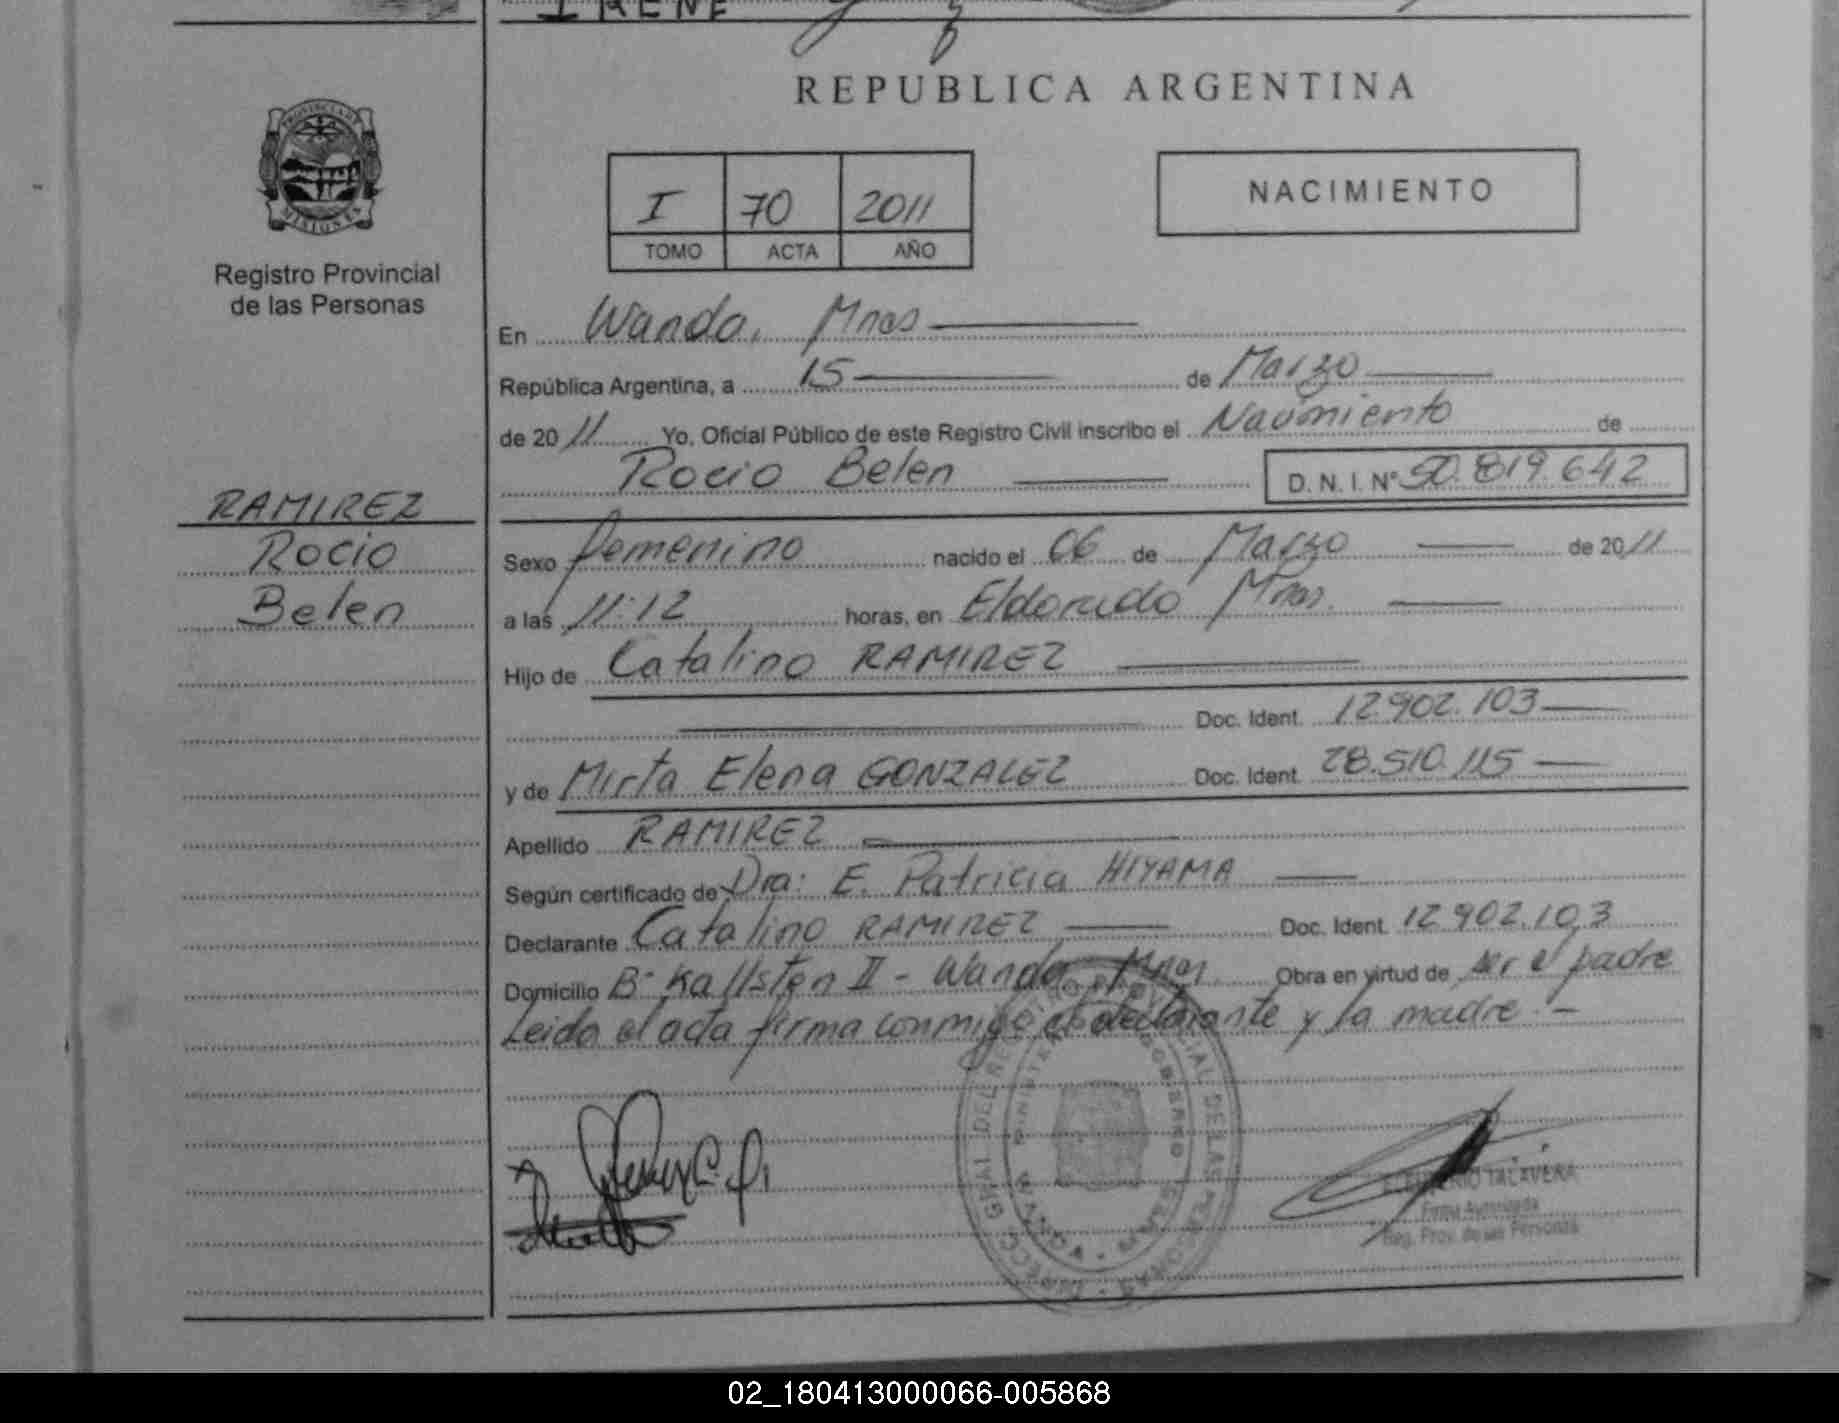 IRENE
REPUBLICA ARGENTINA
PROVINCIA DE
MISIONES
Registro Provincial
de las Personas
I 70 2011
TOMO ACTA AÑO
NACIMIENTO
En Wanda, Mnes
República Argentina, a 15 de Marzo
de 20 11 Yo, Oficial Público de este Registro Civil inscribo el Nacimiento de
Rocio Belen D. N. I. N° 50.819.642
RAMIREZ
Rocio
Belen
Sexo femenino nacido el 06 de Marzo de 20 11
a las 11:12 horas, en Eldorado Mnes.
Hijo de Catalino RAMIREZ
Doc. Ident. 12.902.103
y de Mirta Elena GONZALEZ Doc. Ident. 28.510.115
Apellido RAMIREZ
Según certificado de Dra: E. Patricia HIYAMA
Declarante Catalino RAMIREZ Doc. Ident. 12.902.103
Domicilio B° Kallsten II - Wanda, Mnes. Obra en virtud de ser el padre
Leida el acta firma conmigo el declarante y la madre.-
WANDA
TALAVERA
Firma Autorizada
Reg. Prov. de las Personas
02_180413000066-005868